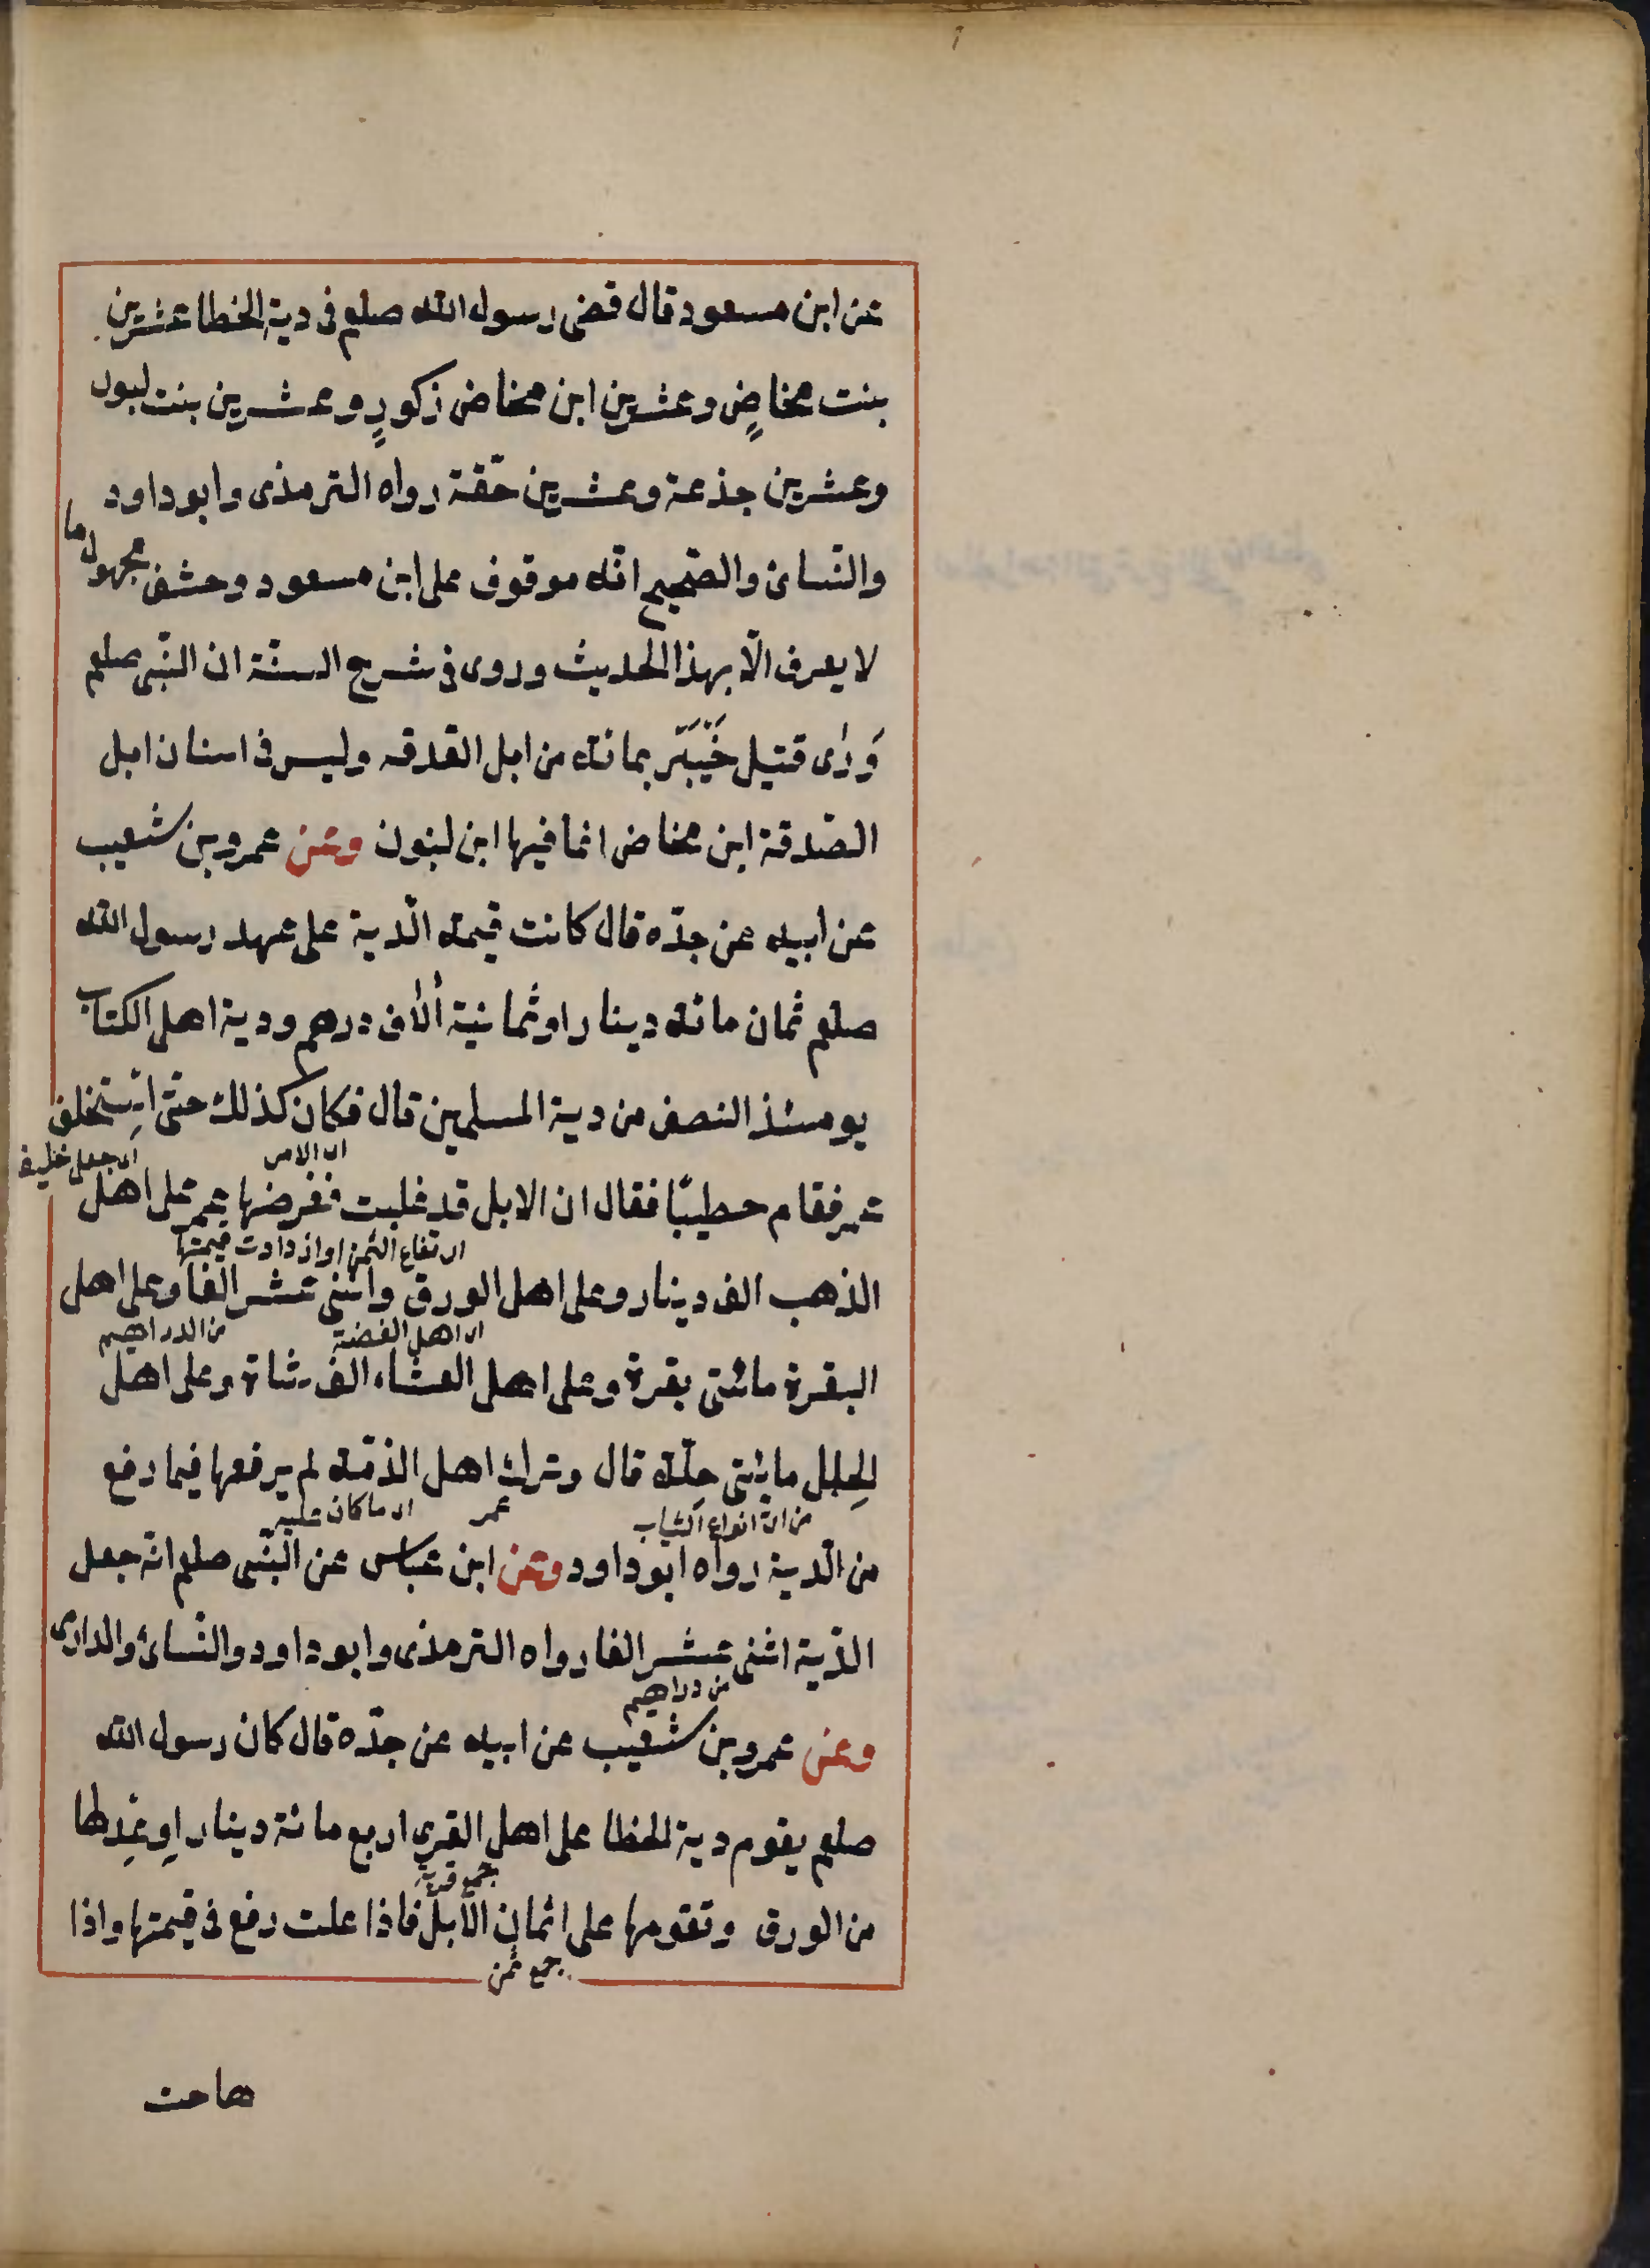 عن ابن مسعود قال قضى رسول الله صلعم فى دية الخطا عشرين
بنت مخاضٍ وعشرين ابن مخاض ذكورٍ وعشرين بنت لبون
وعشرين جذعة وعشرين حقّة رواه الترمذى وابو داود
والنّسائ والصّحيح انّه موقوف على ابن مسعود وحشف مجهول ما
لا يعرف الّا بهذا الحديث وروى فى شرح السنّة ان النّبى صلعم
وَدٰى قتيل خَيْبَر بمائة من ابل الصدقه وليس فى اسنان ابل
الصّدقة ابن مخاض انما فيها ابن لبون وعن عمرو بن شعيب
عن ابيه عن جدّه قال كانت قيمة الّدية على عهد رسول الله
صلعم ثمان مائة دينار او ثمانية ألاف درهم ودية اهل الكتاب
يومئذ النصف من دية المسلمين قال فكان كذلك حتّى استخلف
اى الامر اى جعل خليفة
عمر فقام حطيبًا فقال ان الابل قد غلبت ففرضها عمر على اهل
ارتفاع الثمن او ازدادت قيمتها
الذهب الف دينار وعلى اهل الورق واثنى عشر الفا وعلى اهل
اى اهل الفضة من الدراهيم
البقرة مائتى بقرة وعلى اهل الشاء الف شاة وعلى اهل
الحِلل مائتى حلّة قال وترك اهل الذمّة لم يرفعها فيما رفع
من اى انواع الثياب عمر اى ما كان عليه
من الّدية رواه ابو داود وعن ابن عباس عن النّبى صلعم انه جعل
الدّية اثنى عشر الفا رواه الترمذى وابو داود والنّسائ والدارى
من دراهيم
وعن عمرو بن شعيب عن ابيه عن جدّه قال كان رسول الله
صلعم يقوم دية الخطا على اهل القرى اربع مائة دينار او عِدلها
جمع قرية
من الورق وتقومها على اثمان الابل فاذا علت رفع فى قيمتها واذا
جمع ثمن
هاحت